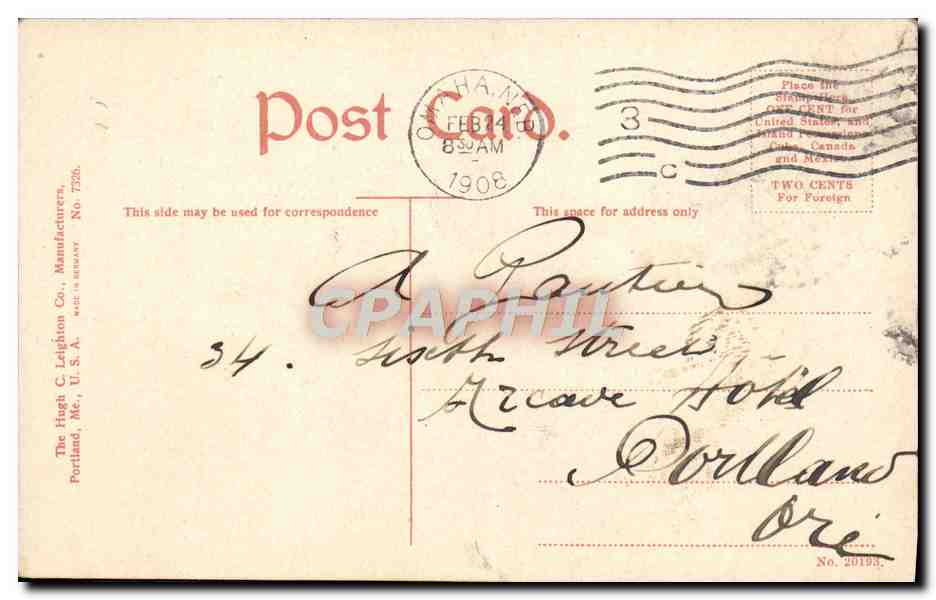 Post Card.
OMAHA, NEB.
FEB 24
8 30 AM
1908
3
C
Place the
Stamp Here
ONE CENT for
United States, and
Island Possessions
Cuba, Canada
and Mexico
TWO CENTS
For Foreign
This side may be used for correspondence
This space for address only
The Hugh C. Leighton Co., Manufacturers,
Portland, Me., U. S. A. MADE IN GERMANY No. 7326.
A
CPAPHIL
34. Sixth Street
Hotel
Portland
Ore
No. 20193.